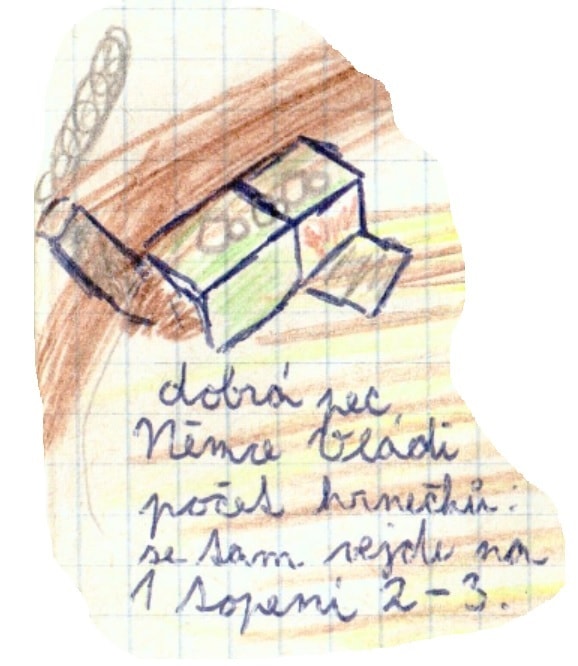 dobrá pec
Němce Vládi
počet hrnečků:
se tam vejde na
1 topení 2-3.